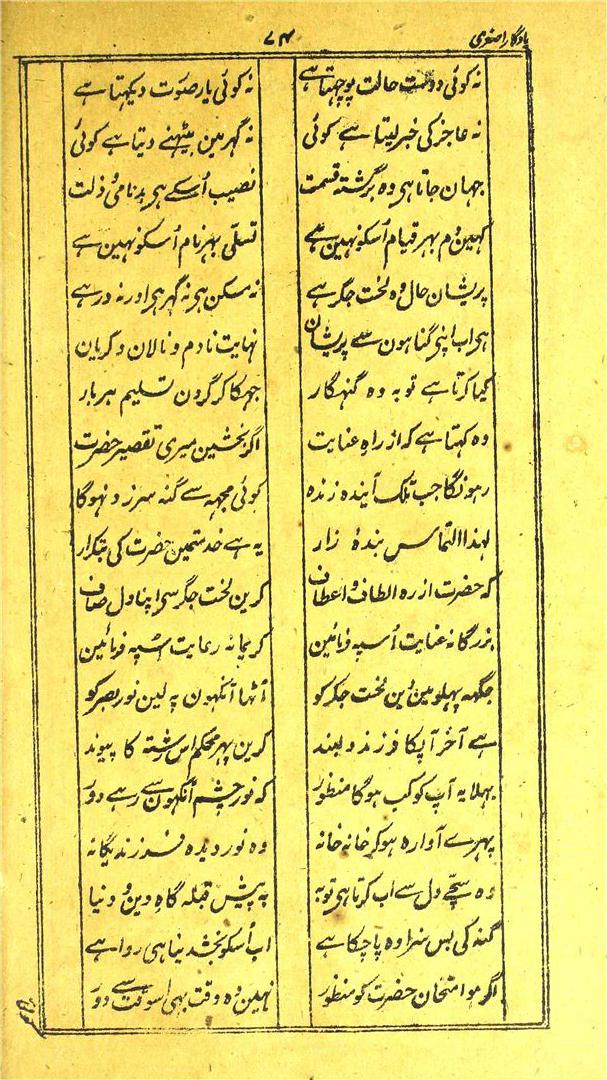 یادگار اصغری
۷۴
نہ کوئی دوست حالت پوچھتا ہے
نہ کوئی یار صورت دیکھتا ہے
نہ عاجز کی خبر لیتا ہے کوئی
نہ گہر مین بیٹھنے دیتا ہے کوئی
جہان جاتا ہی وہ برگشتہ قسمت
نصیب اُسکے ہی بدنامی و ذلت
کہین دم بہر قیام اُسکو نہین ہے
تسلّی بہر نام اُسکو نہین ہے
پریشان حال وہ لخت جگر ہے
نہ مسکن ہی نہ گہر ہی اور نہ در ہے
ہی اب اپنی گناہون سے پریشان
نہایت نادم و نالان و گریان
کیا کرتا ہے توبہ وہ گنہگار
جہکا کر گردن تسلیم ہر بار
وہ کہتا ہے کہ از راہ عنایت
اگر بخشین میری تقصیر حضرت
رہونگا جب تلک آیندہ زندہ
کوئی مجہہ سے گنہ سرزد نہوگا
لہذا التماس بندۂ زار
یہ ہے خدمتمین حضرت کی بتکرار
کہ حضرت از رہ الطاف و اعطاف
کرین لخت جگر سی اپنا دل صاف
بزرگانہ عنایت اُسپہ فرمائین
کریمانہ رعایت اسپہ فرمائین
جگہہ پہلو مین دین لخت جگر کو
اُٹھا آنکہون پہ لین نور بصر کو
ہے آخر آپکا فرزند دلبند
کرین پہر محکم اس رشتہ کا پیوند
بہلا یہ آپ کو کب ہوگا منظور
کہ نور چشم آنکہون سے رہے دور
پہرے آوارہ ہو کر خانہ خانہ
وہ نور دیدہ فرزند یگانہ
وہ سچے دل سے اب کرتا ہی توبہ
پہ پیش قبلہ گاہ دین و دنیا
گنہ کی بس سزا وہ پا چکا ہے
اب اُسکو بخشدینا ہی روا ہے
اگر ہو امتحان حضرت کو منظور
نہین وہ وقت بہی اسوقت سے دور